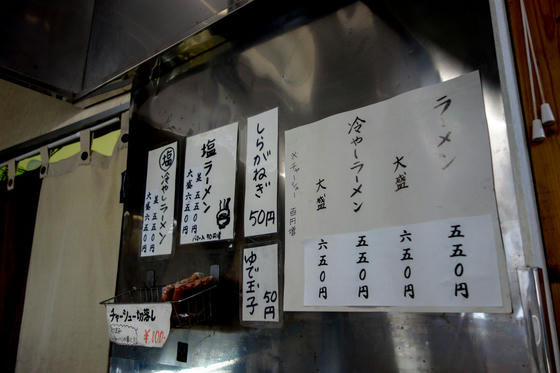 ラーメン 五五〇円
大盛 六五〇円
冷やしラーメン 五五〇円
大盛 六五〇円
※チャーシュー 百円増
しらがねぎ 50円
ゆで玉子 50円
塩ラーメン
並 五五〇円
大盛 六五〇円
塩 冷やしラーメン
並 五五〇円
大盛 六五〇円
チャーシュー切落し
¥100-